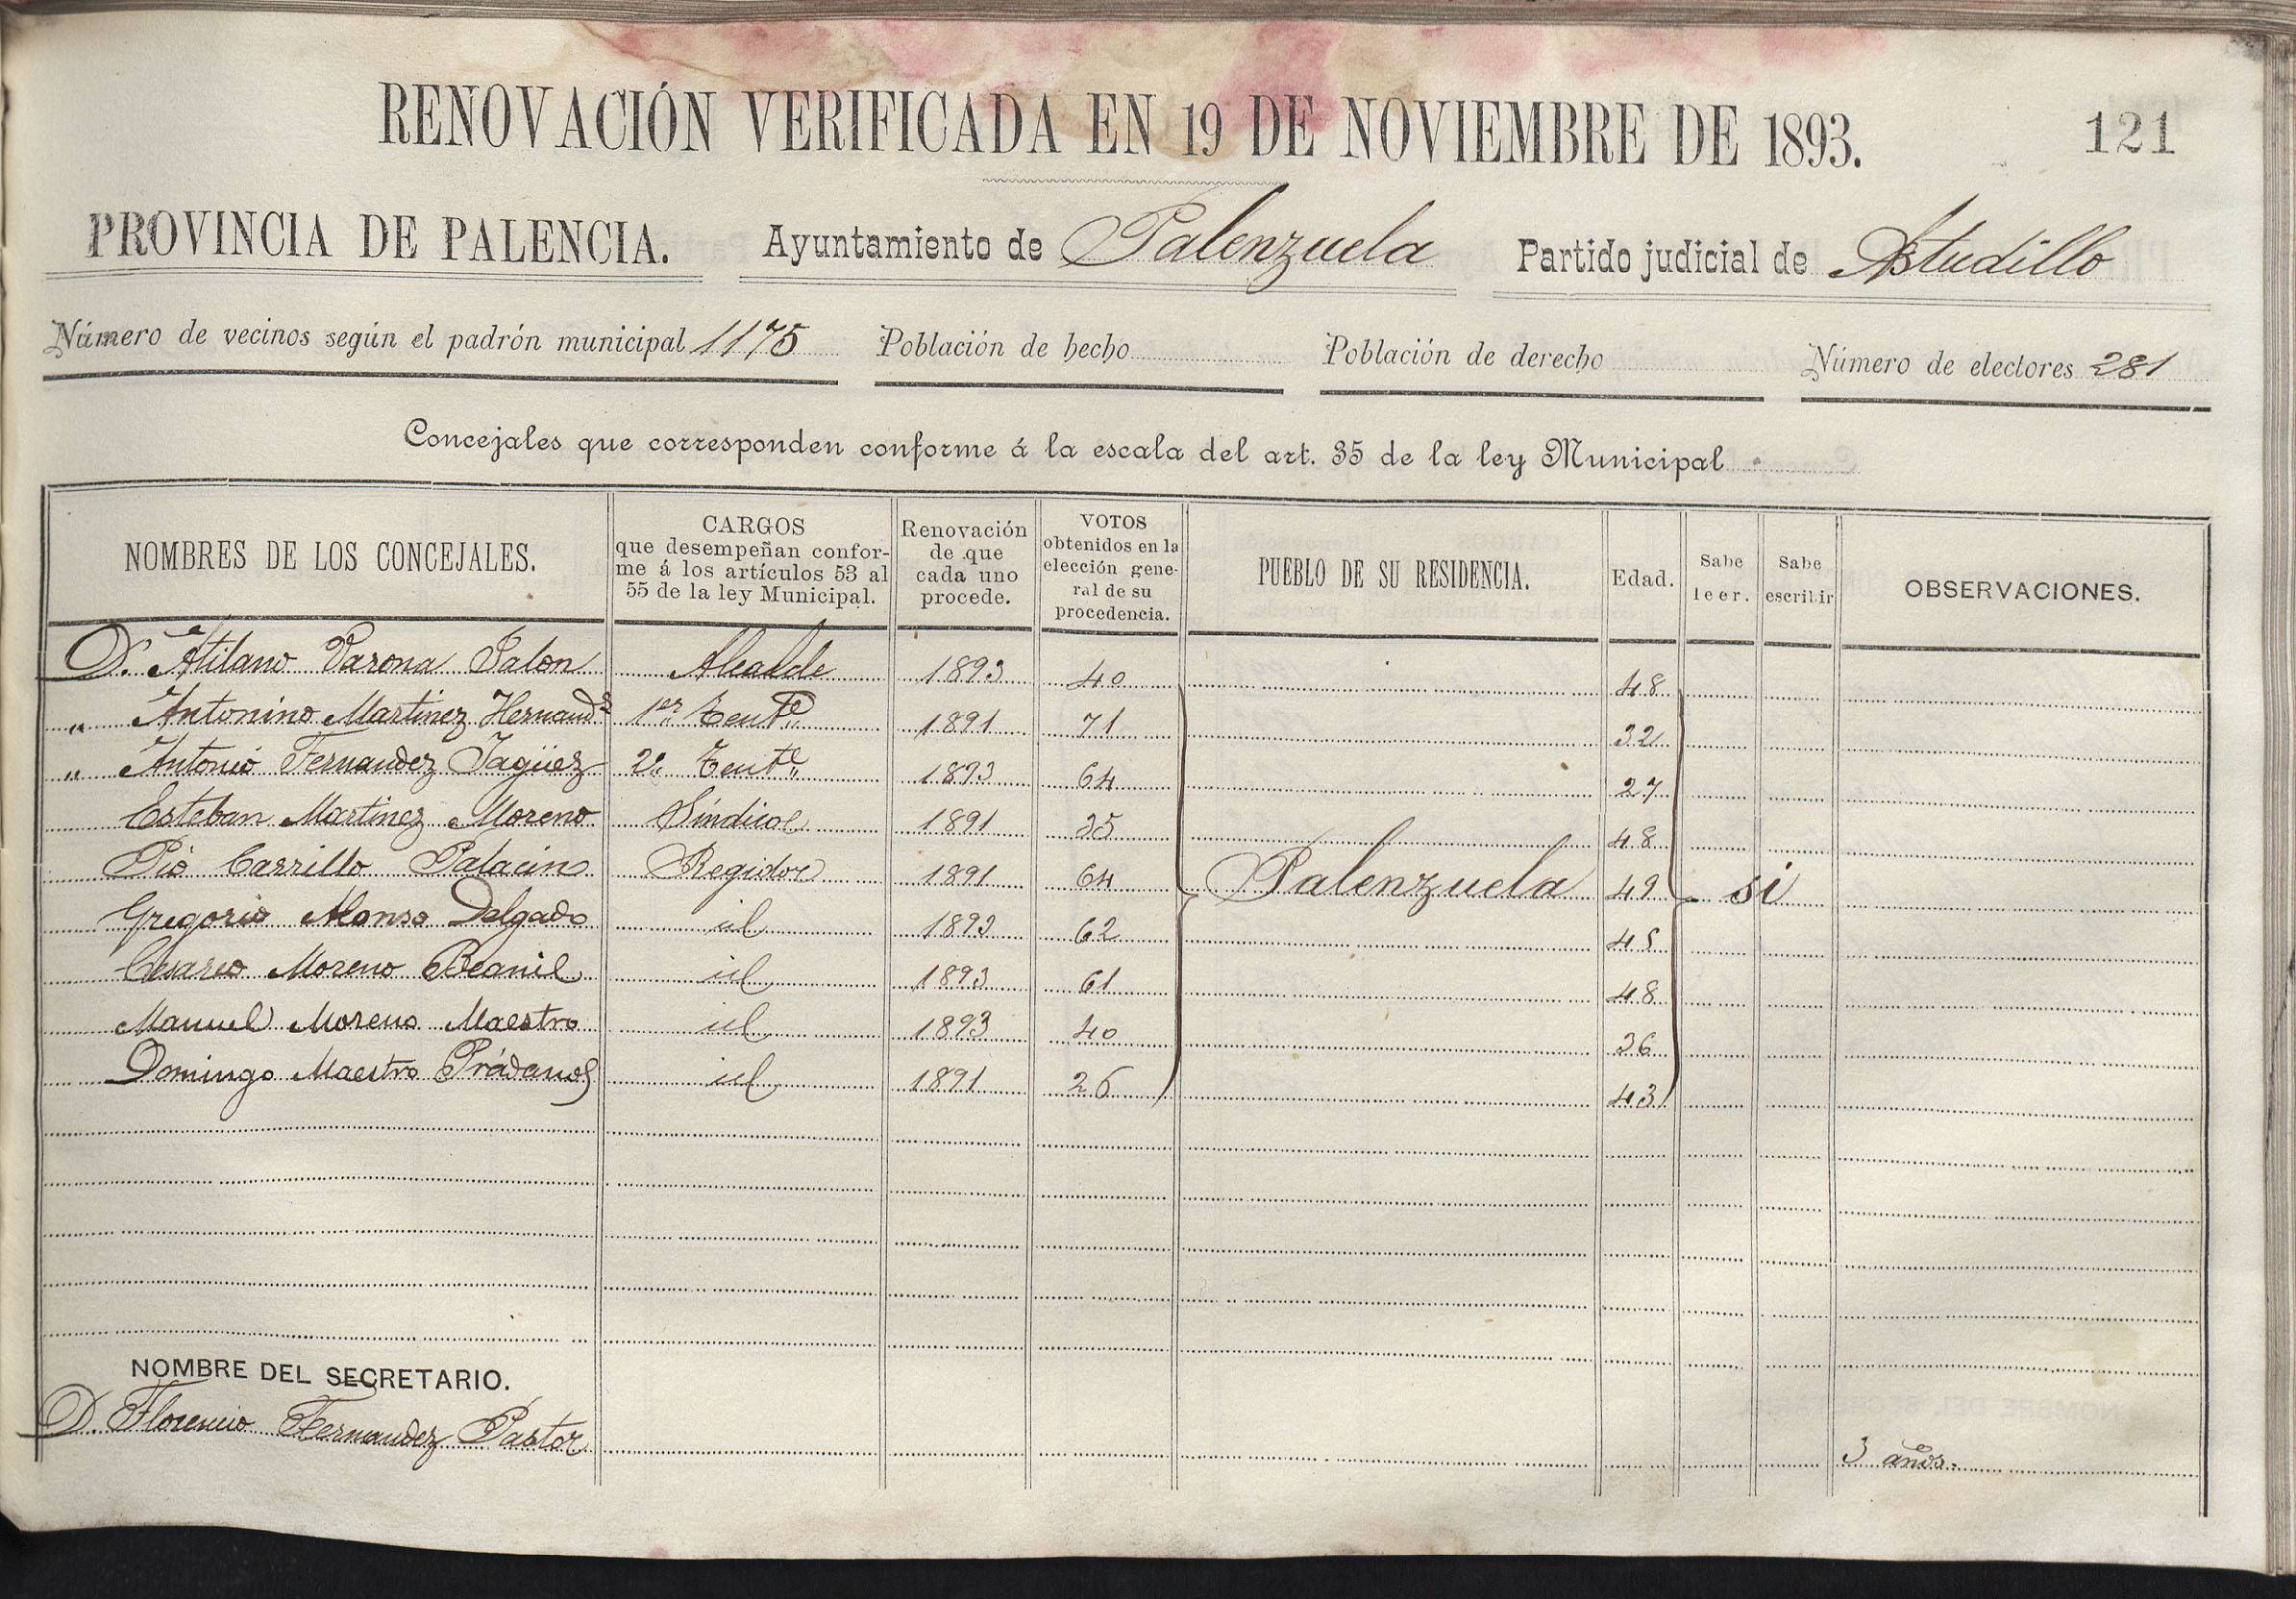 RENOVACIÓN VERIFICADA EN 19 DE NOVIEMBRE DE 1893. 121
PROVINCIA DE PALENCIA. Ayuntamiento de Palenzuela Partido judicial de Astudillo
Número de vecinos según el padrón municipal 1175 Población de hecho Población de derecho Número de electores 281
Concejales que corresponden conforme á la escala del art. 35 de la ley Municipal
NOMBRES DE LOS CONCEJALES. CARGOS que desempeñan confor-me á los artículos 53 al 55 de la ley Municipal. Renovación de que cada uno procede. VOTOS obtenidos en la elección gene-ral de su procedencia. PUEBLO DE SU RESIDENCIA. Edad. Sabe leer. Sabe escribir OBSERVACIONES.
D. Atilano Varona Salon Alcalde 1893 40 48
„ Antonino Martinez Hernandz 1er Tente 1891 71 32
„ Antonio Fernandez Jagüez 2º Tente 1893 64 27
Esteban Martinez Moreno Síndico 1891 35 48
Pio Carrillo Palacin Regidor 1891 64 Palenzuela 49 si
Gregorio Alonso Delgado id 1893 62 45
Cesareo Moreno id 1893 61 48
Manuel Moreno Maestro id 1893 40 36
Domingo Maestro Prádanos id 1891 26 43
NOMBRE DEL SECRETARIO.
D. Florencio Fernandez Pastor 3 años.